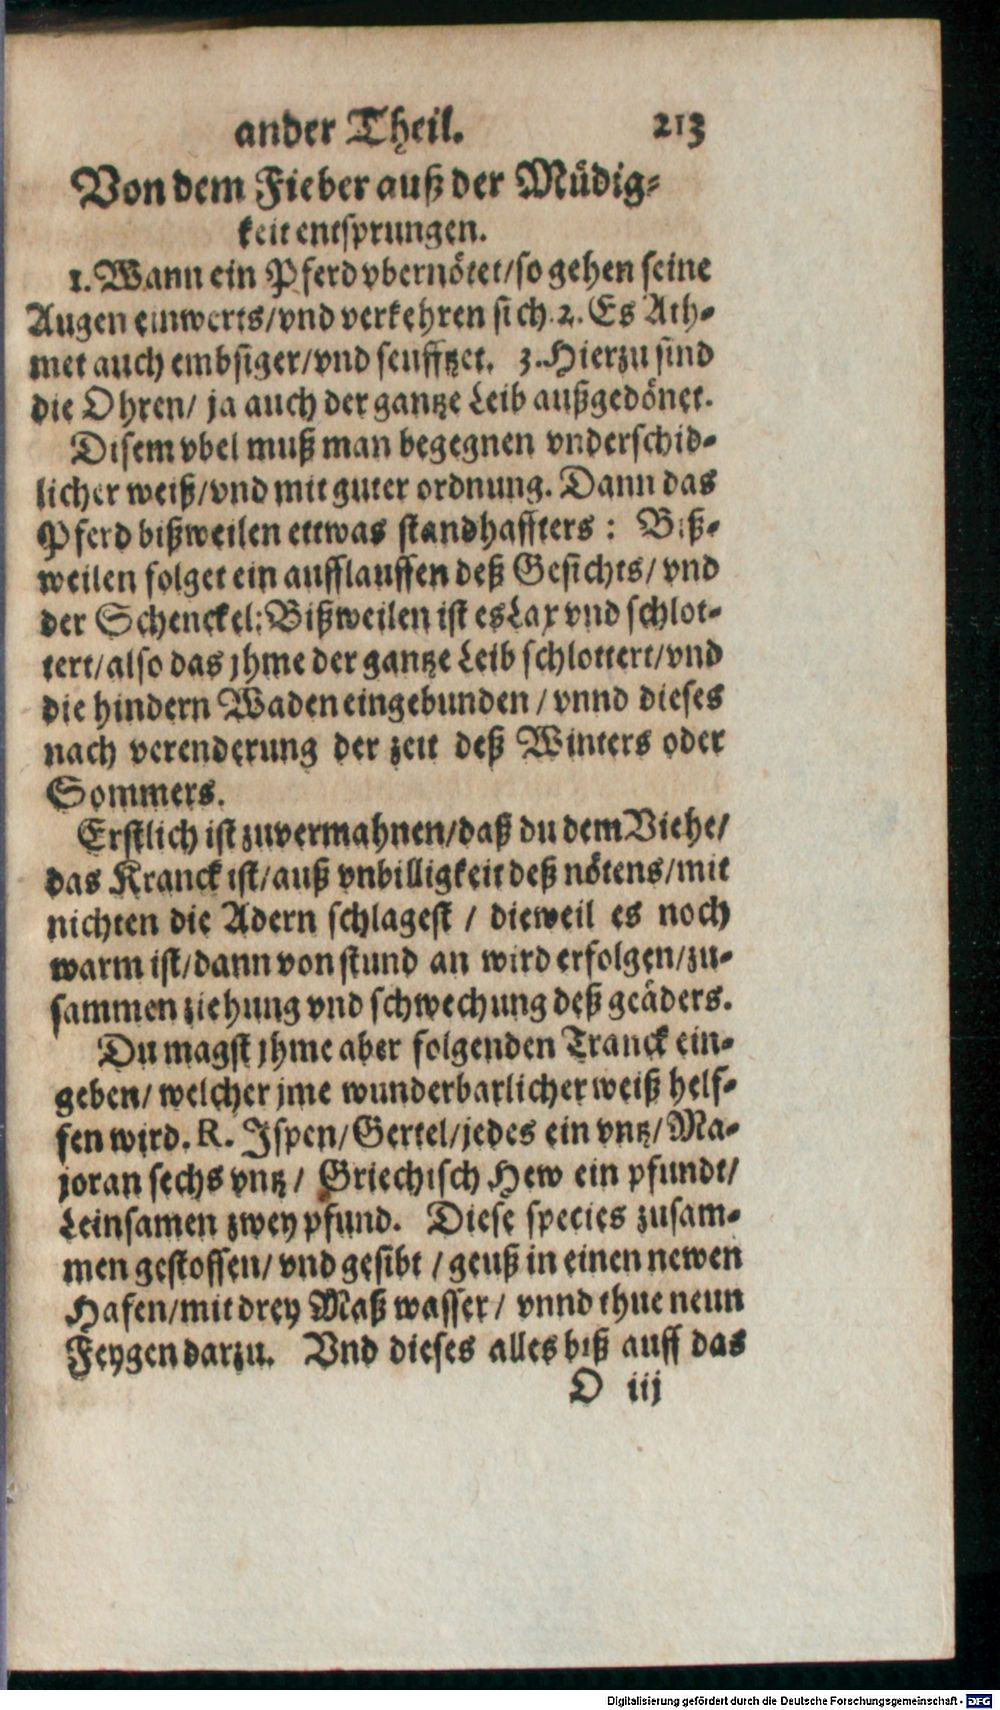 ander Theil. 213
Von dem Fieber auß der Müdig-
keit entsprungen.
1. Wann ein Pferd vbernötet/so gehen seine
Augen einwerts/vnd verkehren sich. 2. Es Ath-
met auch embsiger/vnd seufftzet. 3. Hierzu sind
die Ohren/ ja auch der gantze Leib außgedönet.
Disem vbel muß man begegnen vnderschid-
licher weiß/vnd mit guter ordnung. Dann das
Pferd bißweilen ettwas standhaffters : Biß-
weilen folget ein aufflauffen deß Gesichts/ vnd
der Schenckel: Bißweilen ist es Lax vnd schlot-
tert/also das jhme der gantze Leib schlottert/vnd
die hindern Waden eingebunden / vnnd dieses
nach verenderung der zeit deß Winters oder
Sommers.
Erstlich ist zuvermahnen/daß du dem Viehe/
das Kranck ist/auß vnbilligkeit deß nötens/mit
nichten die Adern schlagest / dieweil es noch
warm ist/dann von stund an wird erfolgen/zu-
sammen ziehung vnd schwechung deß geäders.
Du magst jhme aber folgenden Tranck ein-
geben/ welcher jme wunderbarlicher weiß helf-
fen wird. R. Jspen/Gertel/jedes ein vntz/Ma-
joran sechs vntz / Griechisch Hew ein pfundt/
Leinsamen zwey pfund. Diese species zusam-
men gestossen/ vnd gesibt / geuß in einen newen
Hafen/mit drey Maß wasser/ vnnd thue neun
Feygen darzu. Vnd dieses alles biß auff das
O iij
Digitalisierung gefördert durch die Deutsche Forschungsgemeinschaft - DFG